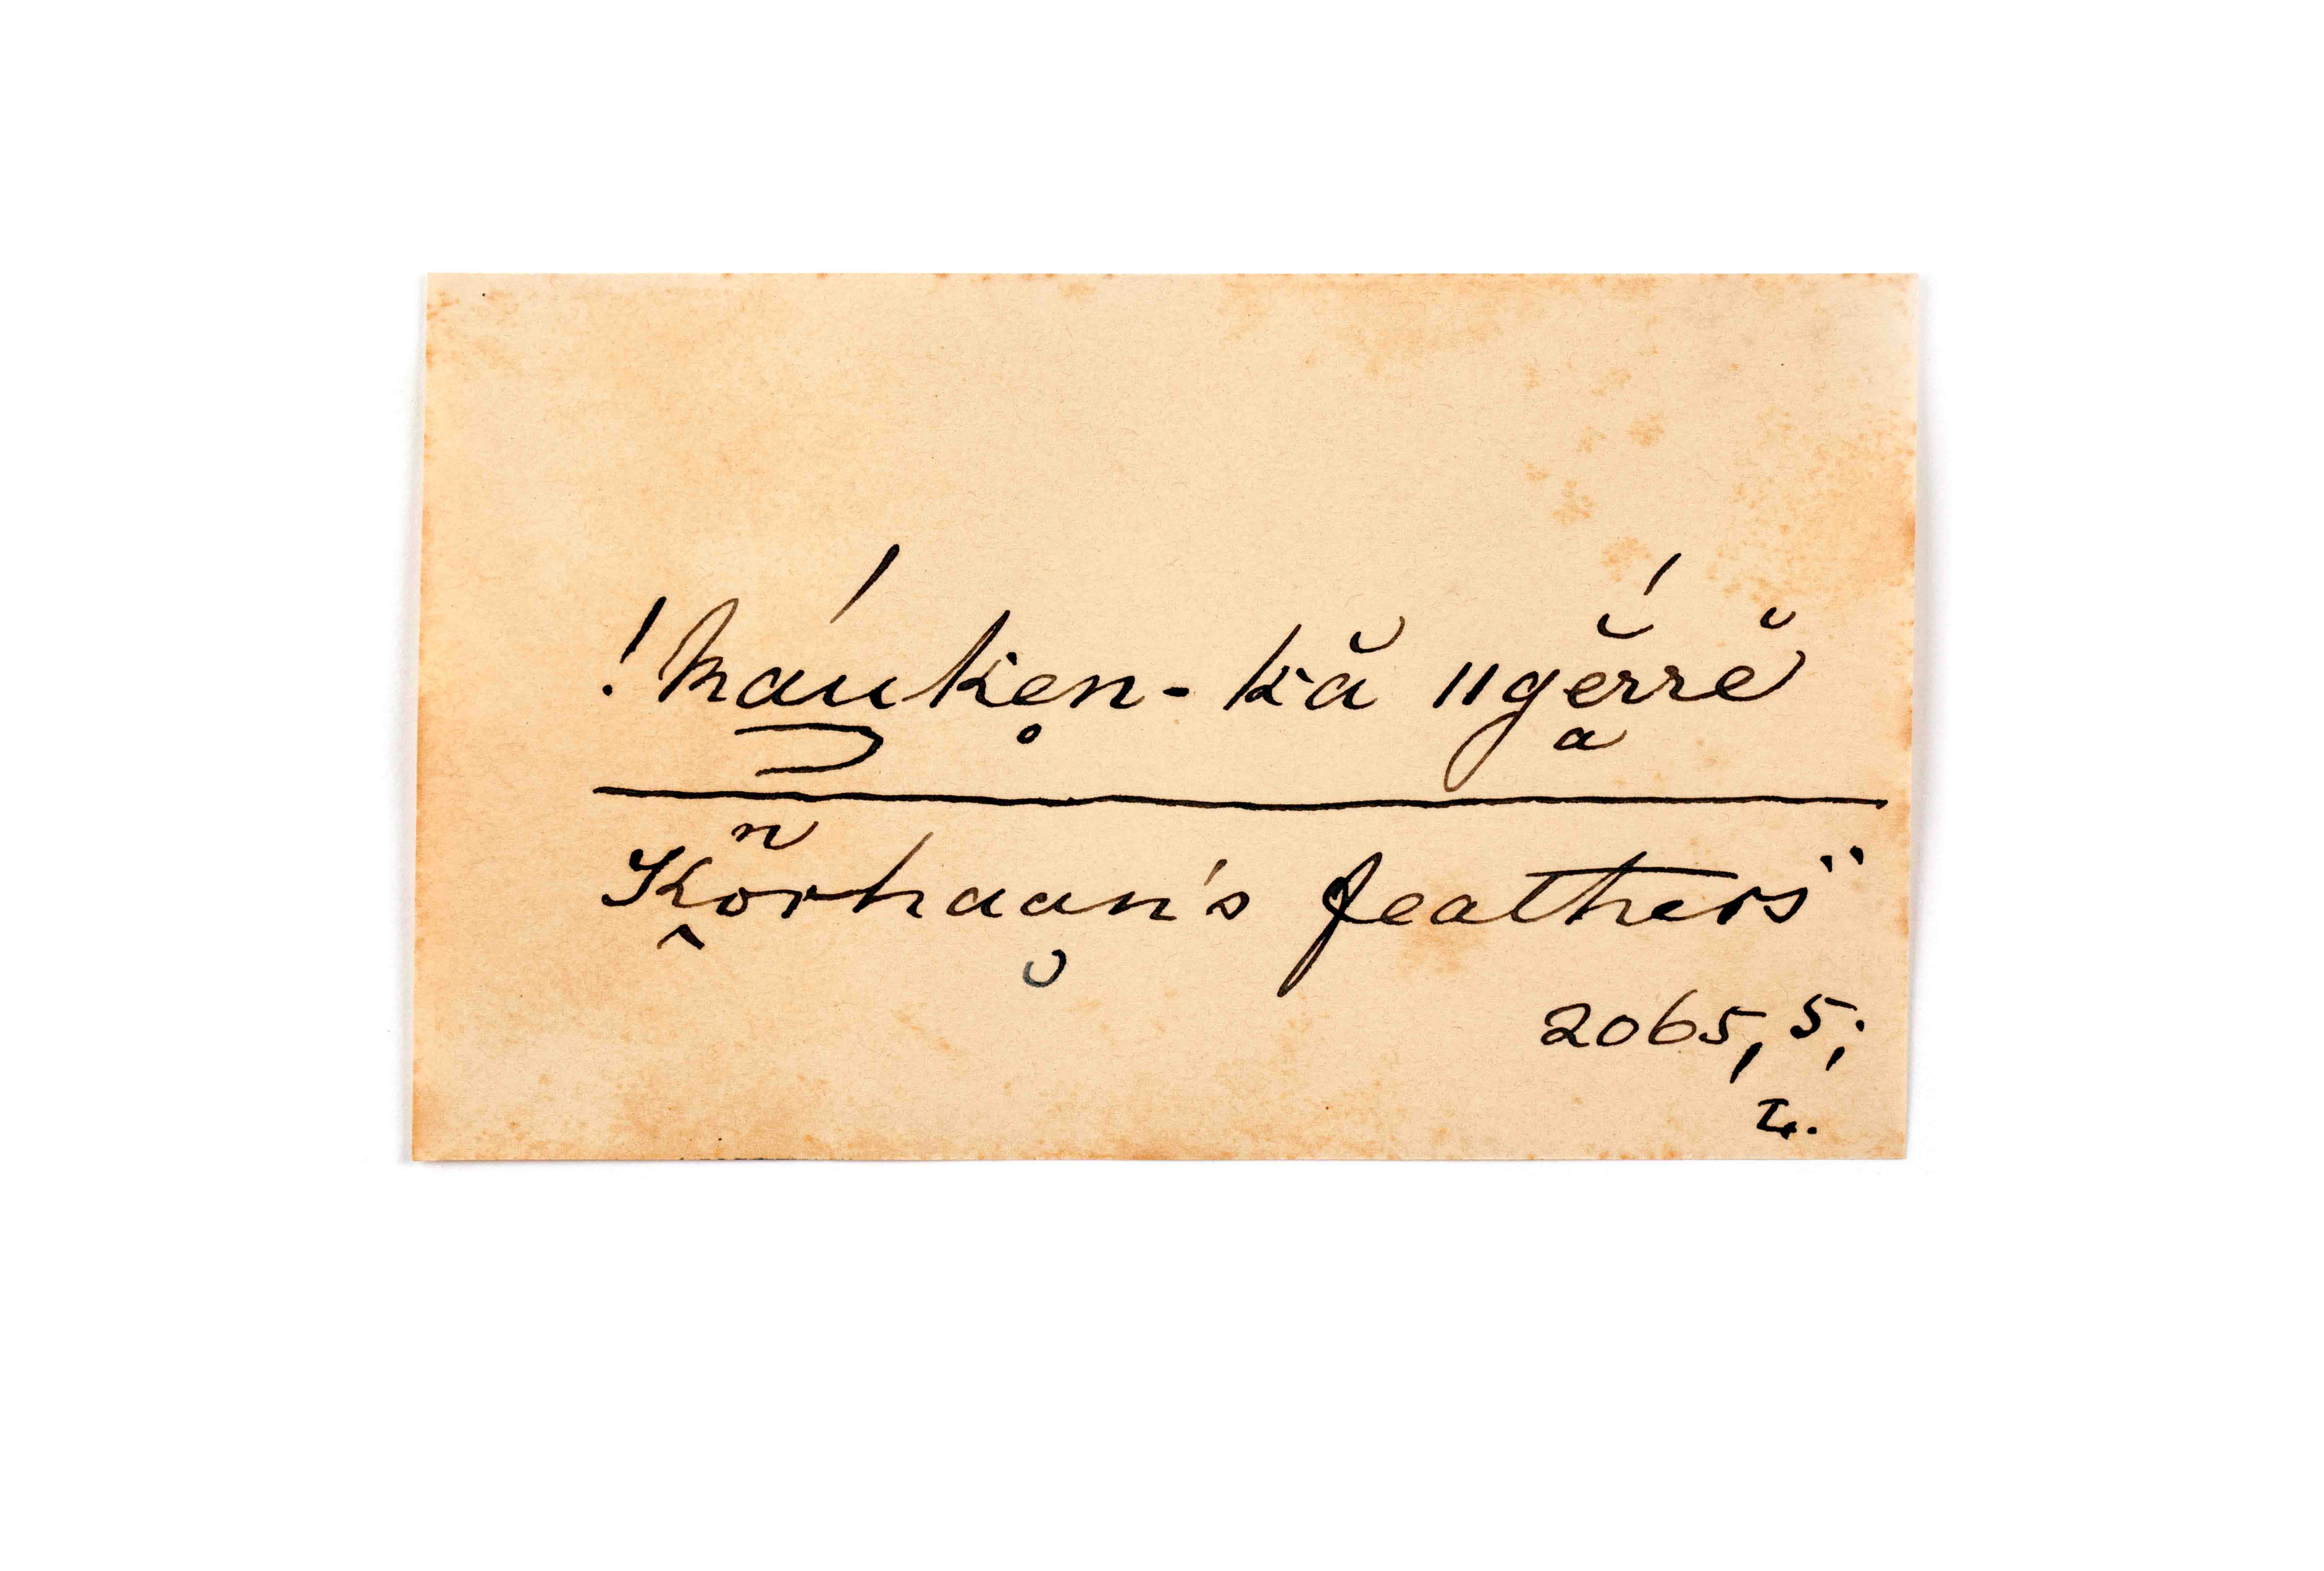 !háuken-kă ǁgĕ́rrĕ
Korhaan's feathers
2065, 5;
L.